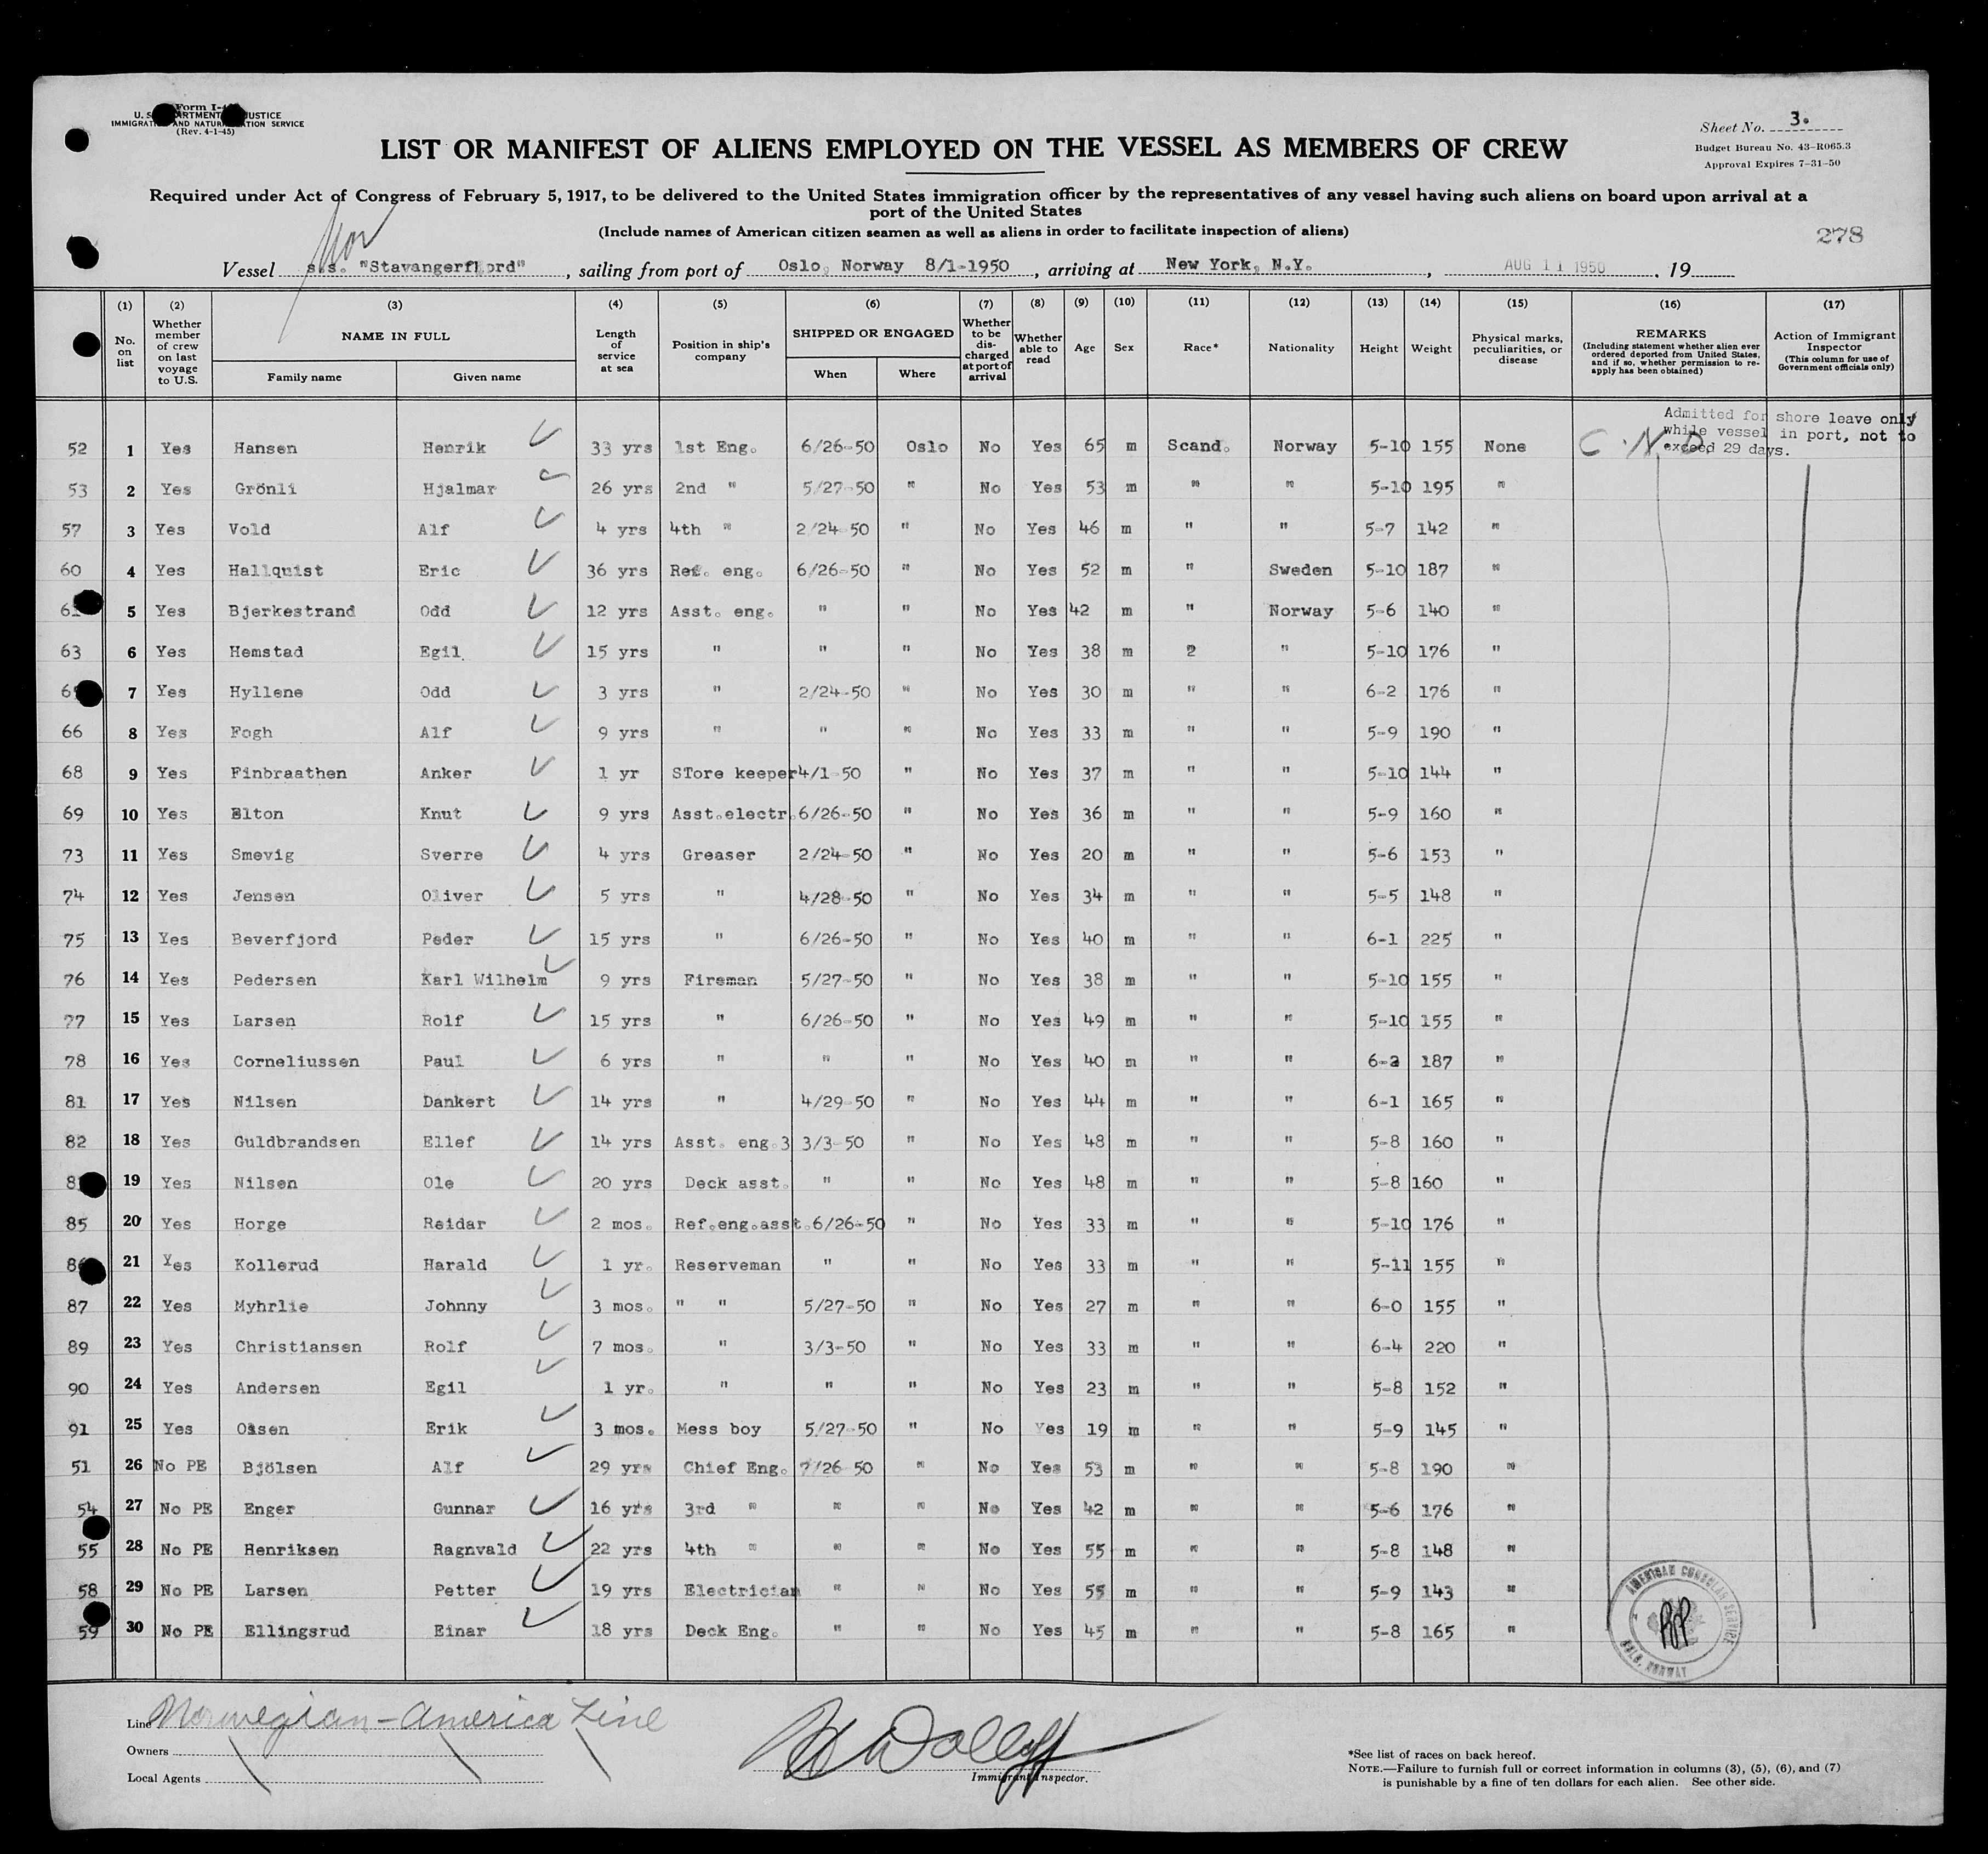 Form I-4
U. S. DEPARTMENT OF JUSTICE
IMMIGRATION AND NATURALIZATION SERVICE
(Rev. 4-1-45)
Sheet No. 3.
Budget Bureau No. 43-R065.3
Approval Expires 7-31-50
LIST OR MANIFEST OF ALIENS EMPLOYED ON THE VESSEL AS MEMBERS OF CREW
Required under Act of Congress of February 5, 1917, to be delivered to the United States immigration officer by the representatives of any vessel having such aliens on board upon arrival at a
port of the United States
(Include names of American citizen seamen as well as aliens in order to facilitate inspection of aliens)
278
Nor
Vessel s.s. "Stavangerfjord", sailing from port of Oslo, Norway 8/1-1950, arriving at New York, N.Y., AUG 11 1950, 19
(1) (2) (3) (4) (5) (6) (7) (8) (9) (10) (11) (12) (13) (14) (15) (16) (17)
No. on list Whether member of crew on last voyage to U.S. NAME IN FULL Family name Given name Length of service at sea Position in ship's company SHIPPED OR ENGAGED When Where Whether to be discharged at port of arrival Whether able to read Age Sex Race* Nationality Height Weight Physical marks, peculiarities, or disease REMARKS (Including statement whether alien ever ordered deported from United States, and if so, whether permission to re-apply has been obtained) Action of Immigrant Inspector (This column for use of Government officials only)
Admitted for shore leave only
while vessel in port, not to
exceed 29 days.
52 1 Yes Hansen Henrik 33 yrs 1st Eng. 6/26-50 Oslo No Yes 65 m Scand. Norway 5-10 155 None C.N.D.
53 2 Yes Grönli Hjalmar 26 yrs 2nd " 5/27-50 " No Yes 53 m " " 5-10 195 "
57 3 Yes Vold Alf 4 yrs 4th " 2/24-50 " No Yes 46 m " " 5-7 142 "
60 4 Yes Hallquist Eric 36 yrs Ref. eng. 6/26-50 " No Yes 52 m " Sweden 5-10 187 "
6 5 Yes Bjerkestrand Odd 12 yrs Asst. eng. " " No Yes 42 m " Norway 5-6 140 "
63 6 Yes Hemstad Egil 15 yrs " " " No Yes 38 m 2 " 5-10 176 "
6 7 Yes Hyllene Odd 3 yrs " 2/24-50 " No Yes 30 m " " 6-2 176 "
66 8 Yes Fogh Alf 9 yrs " " " No Yes 33 m " " 5-9 190 "
68 9 Yes Finbraathen Anker 1 yr STore keeper 4/1-50 " No Yes 37 m " " 5-10 144 "
69 10 Yes Elton Knut 9 yrs Asst.electr. 6/26-50 " No Yes 36 m " " 5-9 160 "
73 11 Yes Smevig Sverre 4 yrs Greaser 2/24-50 " No Yes 20 m " " 5-6 153 "
74 12 Yes Jensen Oliver 5 yrs " 4/28-50 " No Yes 34 m " " 5-5 148 "
75 13 Yes Beverfjord Peder 15 yrs " 6/26-50 " No Yes 40 m " " 6-1 225 "
76 14 Yes Pedersen Karl Wilhelm 9 yrs Fireman 5/27-50 " No Yes 38 m " " 5-10 155 "
77 15 Yes Larsen Rolf 15 yrs " 6/26-50 " No Yes 49 m " " 5-10 155 "
78 16 Yes Corneliussen Paul 6 yrs " " " No Yes 40 m " " 6-2 187 "
81 17 Yes Nilsen Dankert 14 yrs " 4/29-50 " No Yes 44 m " " 6-1 165 "
82 18 Yes Guldbrandsen Ellef 14 yrs Asst. eng.3 3/3-50 " No Yes 48 m " " 5-8 160 "
8 19 Yes Nilsen Ole 20 yrs Deck asst. " " No Yes 48 m " " 5-8 160 "
85 20 Yes Horge Reidar 2 mos. Ref.eng.asst. 6/26-50 " No Yes 33 m " " 5-10 176 "
86 21 Yes Kollerud Harald 1 yr. Reserveman " " No Yes 33 m " " 5-11 155 "
87 22 Yes Myhrlie Johnny 3 mos. " " 5/27-50 " No Yes 27 m " " 6-0 155 "
89 23 Yes Christiansen Rolf 7 mos. " 3/3-50 " No Yes 33 m " " 6-4 220 "
90 24 Yes Andersen Egil 1 yr. " " " No Yes 23 m " " 5-8 152 "
91 25 Yes Olsen Erik 3 mos. Mess boy 5/27-50 " No Yes 19 m " " 5-9 145 "
51 26 No PE Bjölsen Alf 29 yrs Chief Eng. 7/26-50 " No Yes 53 m " " 5-8 190 "
54 27 No PE Enger Gunnar 16 yrs 3rd " " " No Yes 42 m " " 5-6 176 "
55 28 No PE Henriksen Ragnvald 22 yrs 4th " " " No Yes 55 m " " 5-8 148 "
58 29 No PE Larsen Petter 19 yrs Electrician " " No Yes 55 m " " 5-9 143 "
59 30 No PE Ellingsrud Einar 18 yrs Deck Eng. " " No Yes 45 m " " 5-8 165 "
AMERICAN CONSULAR SERVICE
OSLO, NORWAY
Line Norwegian-America Line
Owners
Local Agents
Immigrant Inspector.
*See list of races on back hereof.
NOTE.—Failure to furnish full or correct information in columns (3), (5), (6), and (7)
is punishable by a fine of ten dollars for each alien. See other side.